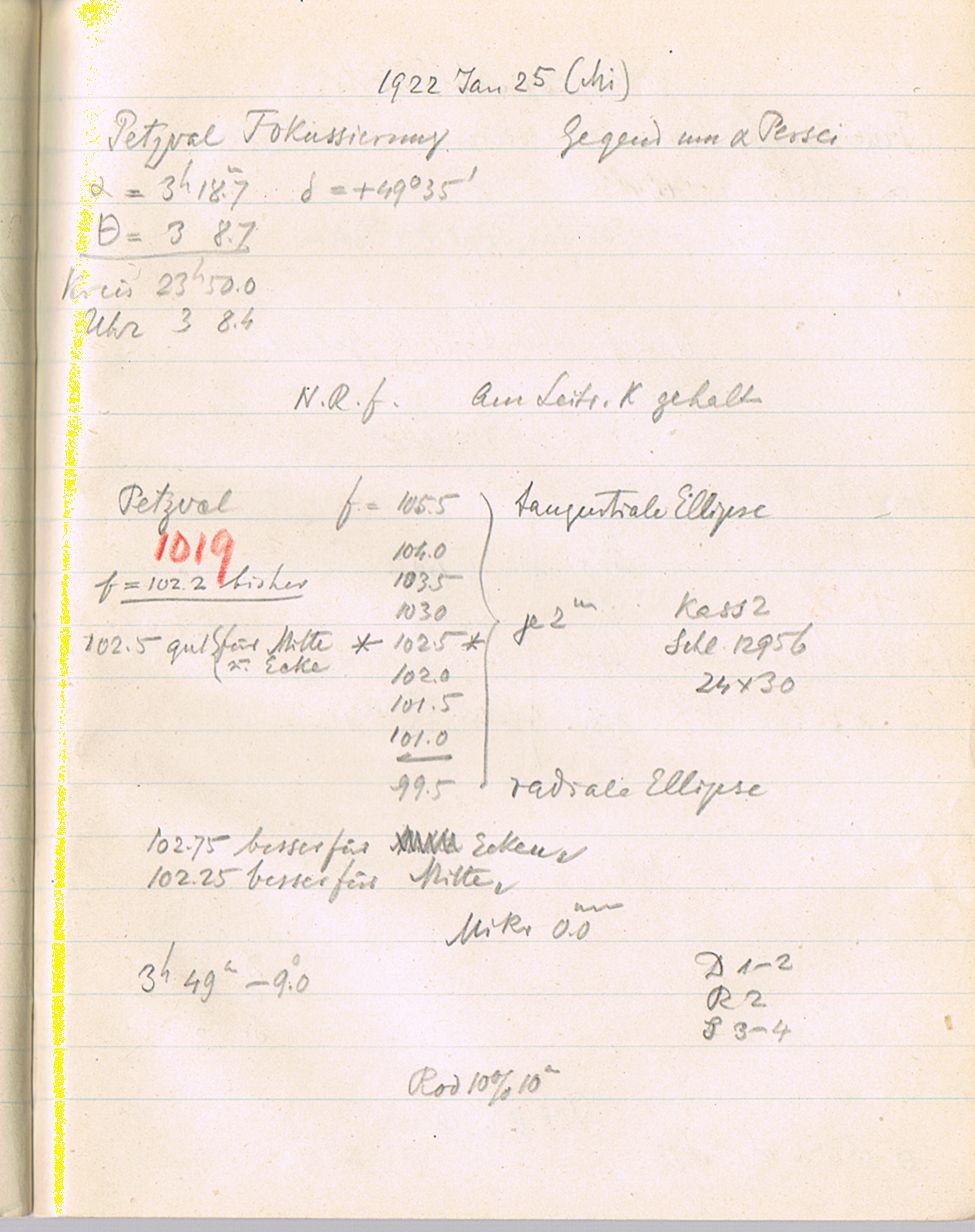 1922 Jan 25 (Mi)
Petzval Fokussierung Gegend um α Persei
α = 3ʰ 18.ᵐ7 δ = +49°35'
θ = 3 8.7
Kreis 23ʰ50.0
Uhr 3 8.4
N.R.f. Am Leitr. K gehalt
Petzval f = 105.5 tangentiale Ellipse
1019
104.0
f = 102.2 bisher 103.5
103.0 je 2ᵐ Kass 2
102.5 gut für Mitte * 102.5 * Schl. 1295b
u. Ecke 102.0 24 x 30
101.5
101.0
99.5 radiale Ellipse
102.75 besser für Ecken
102.25 besser für Mitte
Mikr 0.0ᵐᵐ
3ʰ 49ᵐ −9.°0 D 1-2
R 2
S 3-4
Rod 10% 10ᵐ